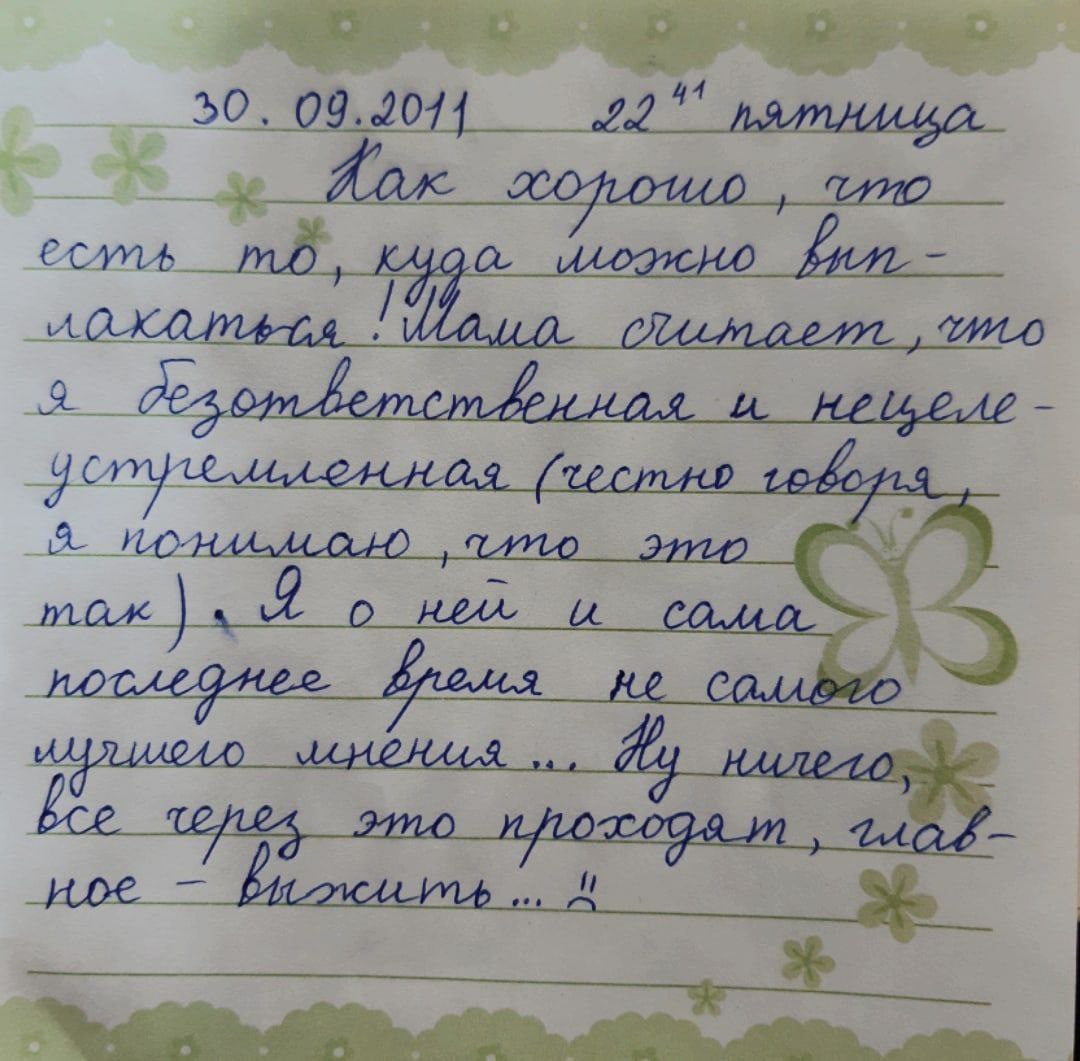 30.09.2011 22⁴¹ пятница
Как хорошо, что
есть то, куда можно вып-
лакаться! Мама считает, что
я безответственная и нецеле-
устремленная (честно говоря,
я понимаю, что это
так). Я о ней и сама
последнее время не самого
лучшего мнения... Ну ничего,
все через это проходят, глав-
ное - выжить... :(